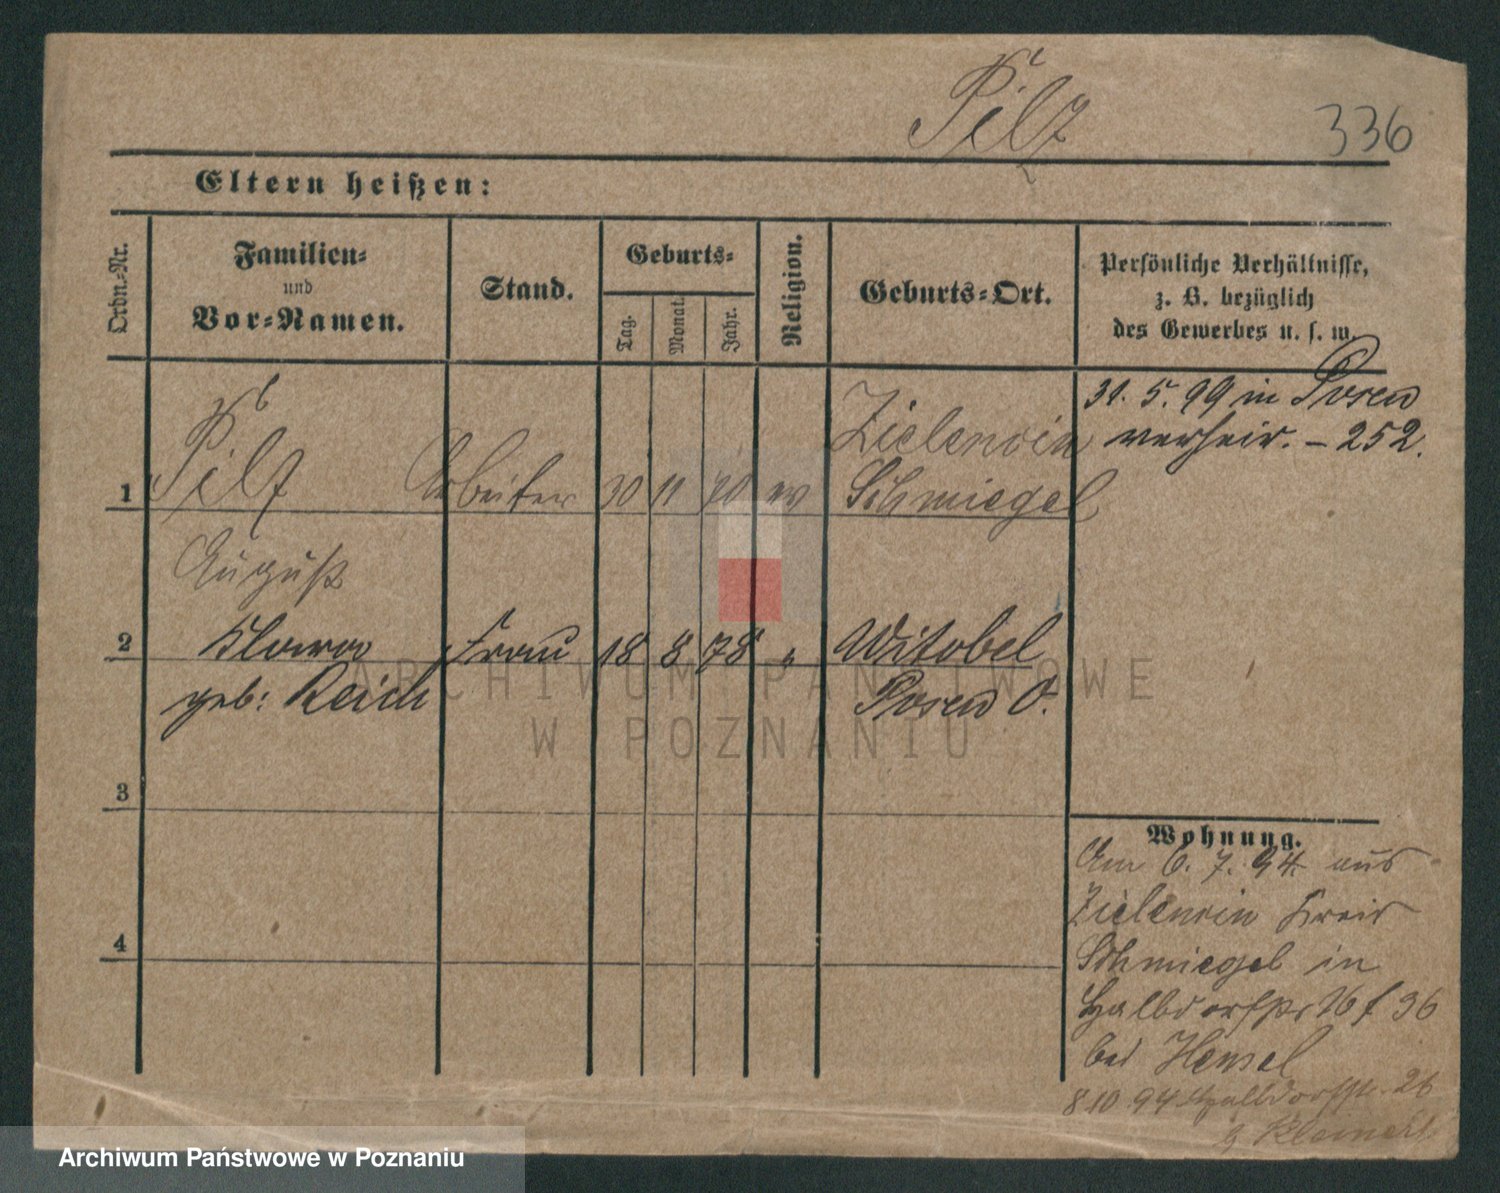 Pilz 336
Eltern heißen:
Ordn.-Nr.
Familien-
und
Vor-Namen.
Stand.
Geburts-
Tag.
Monat.
Jahr.
Religion.
Geburts-Ort.
Persönliche Verhältnisse,
z. B. bezüglich
des Gewerbes u. s. w.
31. 5. 99 in Posen
verheir. – 252.
Zielencin
1 Pilz Arbeiter 30 11 70 ev Schmiegel
August
2 Klara Frau 18 8 78 " Witobel
geb: Reich Posen O.
3
4
Wohnung.
Am 6. 7. 94 aus
Zielencin Kreis
Schmiegel in
Halbdorfstr 16 f 36
bei Hensel
8 10 94 Halbdorfstr. 26
ARCHIWUM PAŃSTWOWE
W POZNANIU
Archiwum Państwowe w Poznaniu